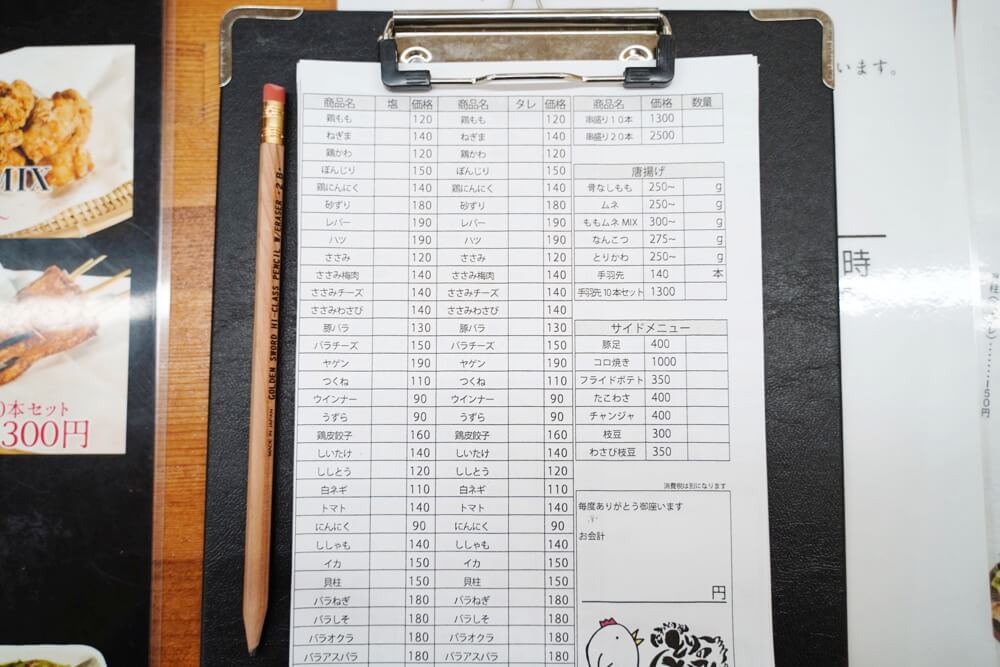 MIX
0本セット
300円
GOLDEN SWORD HI-CLASS PENCIL W/ERASER -2B-
MADE IN JAPAN
商品名 塩 価格 商品名 タレ 価格
鶏もも 120 鶏もも 120
ねぎま 140 ねぎま 140
鶏かわ 120 鶏かわ 120
ぼんじり 150 ぼんじり 150
鶏にんにく 140 鶏にんにく 140
砂ずり 180 砂ずり 180
レバー 190 レバー 190
ハツ 190 ハツ 190
ささみ 120 ささみ 120
ささみ梅肉 140 ささみ梅肉 140
ささみチーズ 140 ささみチーズ 140
ささみわさび 140 ささみわさび 140
豚バラ 130 豚バラ 130
バラチーズ 150 バラチーズ 150
ヤゲン 190 ヤゲン 190
つくね 110 つくね 110
ウインナー 90 ウインナー 90
うずら 90 うずら 90
鶏皮餃子 160 鶏皮餃子 160
しいたけ 140 しいたけ 140
ししとう 120 ししとう 120
白ネギ 110 白ネギ 110
トマト 140 トマト 140
にんにく 90 にんにく 90
ししゃも 140 ししゃも 140
イカ 150 イカ 150
貝柱 150 貝柱 150
バラねぎ 180 バラねぎ 180
バラしそ 180 バラしそ 180
バラオクラ 180 バラオクラ 180
バラアスパラ 180 バラアスパラ 180
商品名 価格 数量
串盛り10本 1300
串盛り20本 2500
唐揚げ
骨なしもも 250~ g
ムネ 250~ g
ももムネMIX 300~ g
なんこつ 275~ g
とりかわ 250~ g
手羽先 140 本
手羽先10本セット 1300
サイドメニュー
豚足 400
コロ焼き 1000
フライドポテト 350
たこわさ 400
チャンジャ 400
枝豆 300
わさび枝豆 350
消費税は別になります
毎度ありがとう御座います
お会計
円
います。
時
150円